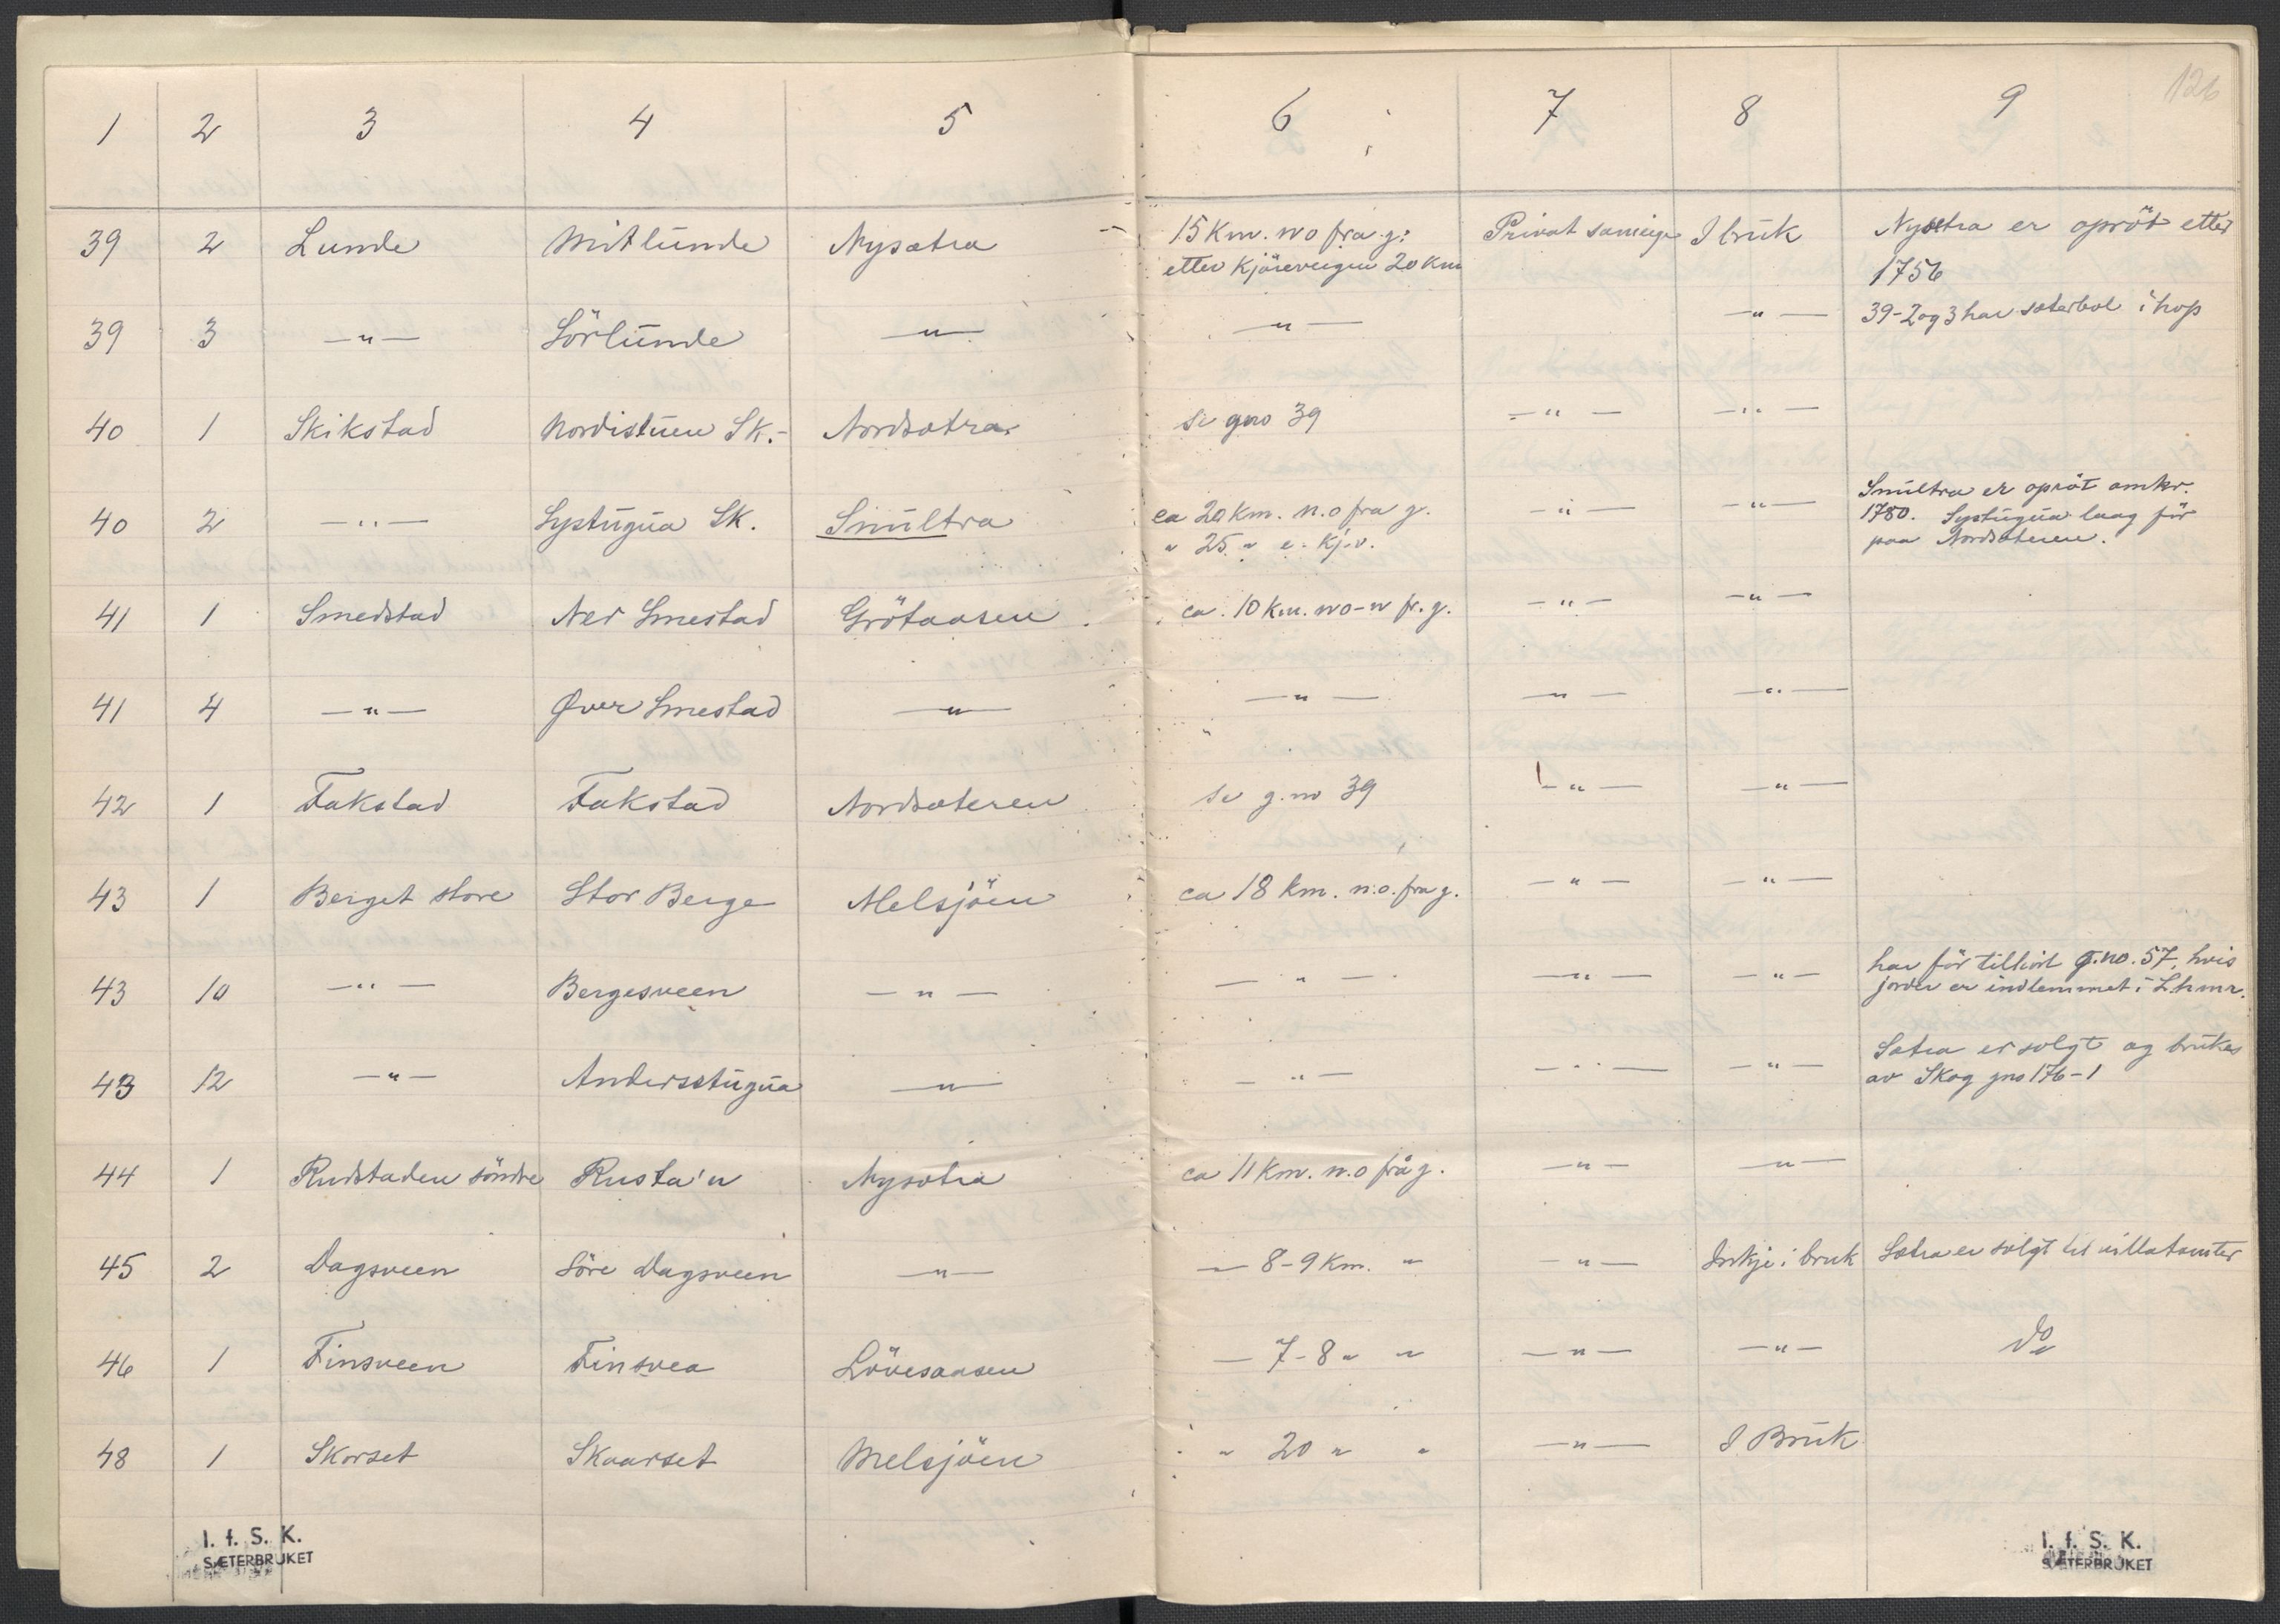 126
1 2 3 4 5 6 7 8 9
39 2 Lunde Mitlunde Nysætra 15 Km. no fra g: Privat sameige I bruk Nysetra er opröt etter
etter Kjöreveigen 20 Km 1756
39 3 —"— Sörlunde —"— —"— —"— 39-2 og 3 har sæterbol ihop
40 1 Skikstad Nordistuen Sk.- Nordsætra. Se gno 39 —"— —"—
40 2 —"— Systugua Sk. Smultra ca 20 Km. n.o fra g. —"— —"— Smultra er opröt omkr.
" 25 " e. Kj.v. 1780. Systugua laag för
paa Nordsæteren.
41 1 Smedstad Ner Smestad Grötaasen ca. 10 Km. no-n fr. g. —"— —"—
41 4 —"— Øver Smestad —"— —"— —"— —"—
42 1 Fakstad Fakstad Nordsæteren Se g.no 39 —"— —"—
43 1 Berget store Stor Berge Melsjöen ca 18 km. n.o. fra g. —"— —"—
43 10 —"— Bergesveen —"— —"— —"— —"— har för tilhört G.no. 57, hvis
jorder er indlemmet i Lhmr.
43 12 —"— Andersstugua —"— —"— —"— —"— Sætra er solgt og brukes
av Skog gno 176-1
44 1 Rudstaden söndre Rusta'n Nysætra ca 11 Km. n.o frå g. —"— —"—
45 2 Dagsveen Söre Dagsveen —"— — 8-9 Km. " —"— Inkje i bruk Sætra er solgt til villatomter
46 1 Finsveen Finsvea Lövesaasen — 7-8 " " —"— —"— do
48 1 Skorset Skaarset Melsjöen " 20 " " —"— I Bruk
I. f. S. K.
SÆTERBRUKET
I. f. S. K.
SÆTERBRUKET